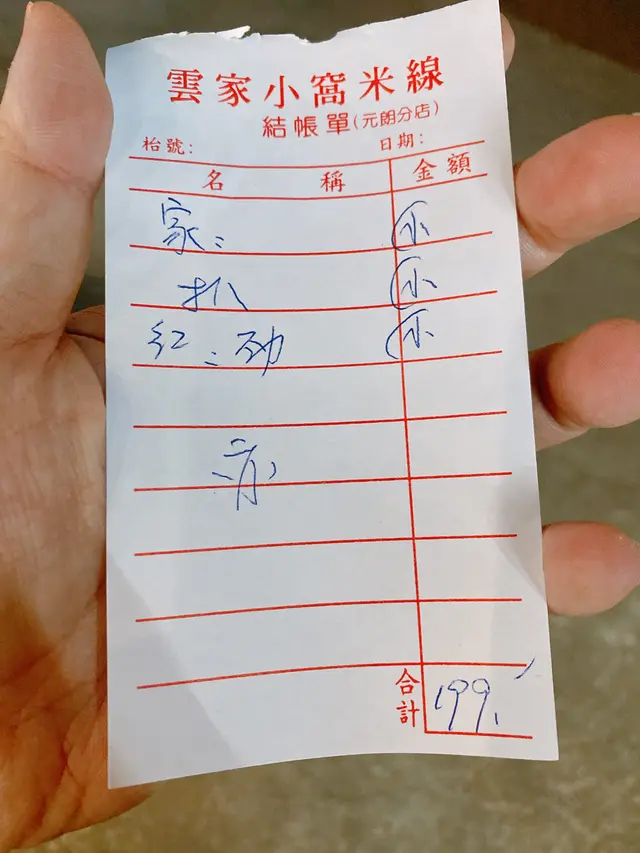 雲家小窩米線
結帳單(元朗分店)
枱號: 日期:
名稱 金額
家: 小
扒 小
紅: 小
合計 199